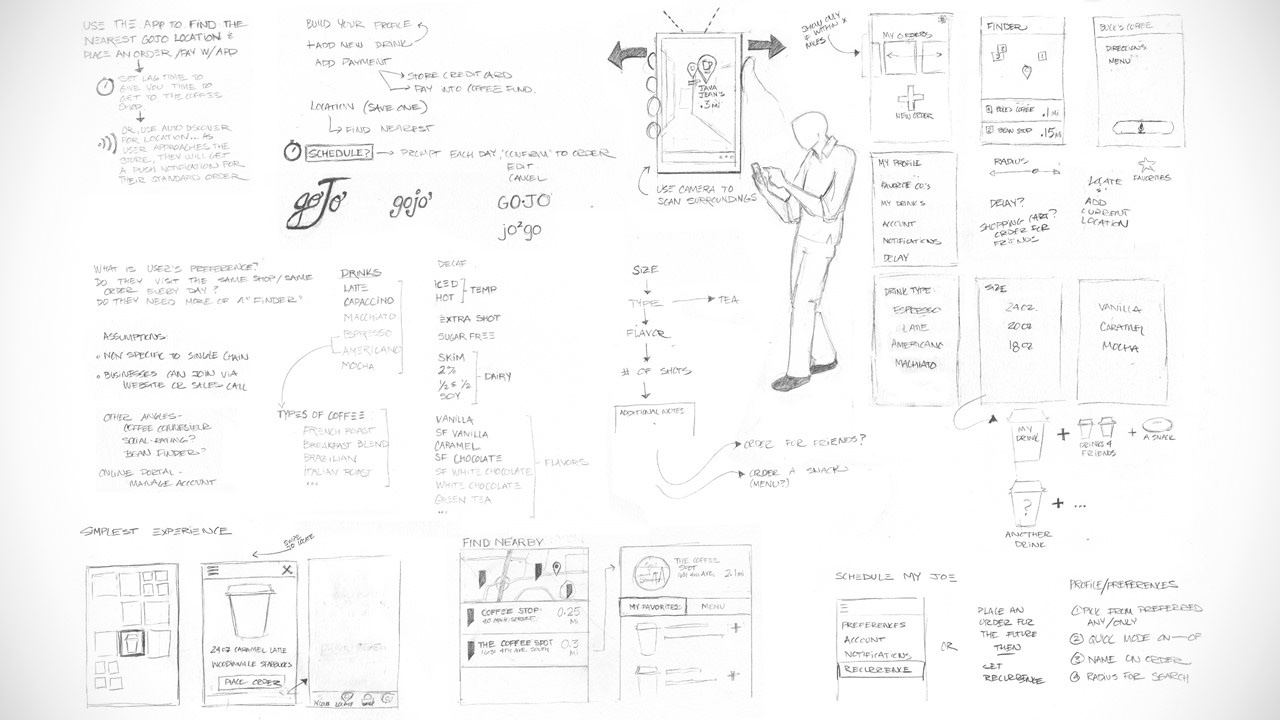 USE THE APP TO FIND THE
NEAREST GOJO LOCATION &
PLACE AN ORDER/PAY W/APP
SET LAG TIME TO
GIVE YOU TIME TO
GET TO THE COFFEE
SHOP
OR, USE AUTO DISCOVER
FOR LOCATION... AS
USER APPROACHES THE
STORE, THEY WILL GET
A PUSH NOTIFICATION FOR
THEIR STANDARD ORDER
BUILD YOUR PROFILE
+ADD NEW DRINK
ADD PAYMENT
STORE CREDIT CARD
PAY INTO COFFEE FUND.
LOCATION (SAVE ONE)
FIND NEAREST
SCHEDULE?
PROMPT EACH DAY, "CONFIRM" TO ORDER
EDIT
CANCEL
goJo
gojo
GO•JO
jo²go
JAVA
JEAN'S
.3 MI
USE CAMERA TO
SCAN SURROUNDINGS
SHOW ONLY
IF WITHIN X
MILES
MY ORDERS
NEW ORDER
FINDER
1
2
1 BUCK'S COFFEE .1 MI
2 BEAN STOP .15 MI
BUCK'S COFFEE
DIRECTIONS
MENU
MY PROFILE
FAVORITE CO'S
MY DRINKS
ACCOUNT
NOTIFICATIONS
DELAY
RADIUS
DELAY?
SHOPPING CART?
ORDER FOR
FRIENDS
FAVORITES
LOCATE
&
ADD
CURRENT
LOCATION
WHAT IS USER'S PREFERENCE?
DO THEY VISIT THE SAME SHOP/SAME
ORDER EVERY DAY?
DO THEY NEED MORE OF A "FINDER"
ASSUMPTIONS:
• NON SPECIFIC TO SINGLE CHAIN
• BUSINESSES CAN JOIN VIA
WEBSITE OR SALES CALL
OTHER ANGLES-
COFFEE CONNESIEUR
SOCIAL-RATING?
BEAN FINDER?
ONLINE PORTAL-
MANAGE ACCOUNT
DRINKS
LATE
CAPACCINO
MACCHIATO
ESPRESSO
AMERICANO
MOCHA
TYPES OF COFFEE
FRENCH ROAST
BREAKFAST BLEND
BRAZILIAN
ITALIAN ROAST
...
DECAF
ICED
HOT
TEMP
EXTRA SHOT
SUGAR FREE
SKIM
2%
½ & ½
SOY
DAIRY
VANILLA
SF VANILLA
CARAMEL
SF CHOCOLATE
SF WHITE CHOCOLATE
WHITE CHOCOLATE
GREEN TEA
...
FLAVORS
SIZE
TYPE
TEA
FLAVOR
# OF SHOTS
ADDITIONAL NOTES
ORDER FOR FRIENDS?
ORDER A SNACK
(MENU?)
DRINK TYPE
ESPRESSO
LATE
AMERICANO
MACHIATO
SIZE
24 OZ.
20 OZ
18 OZ
VANILLA
CARAMEL
MOCHA
MY
DRINK
+
DRINKS 4
FRIENDS
+
A SNACK
?
+ ...
ANOTHER
DRINK
SIMPLEST EXPERIENCE
24 OZ CARAMEL LATE
WOODINVILLE STARBUCKS
PLACE ORDER
FIND NEARBY
COFFEE STOP 0.25
MI
THE COFFEE SPOT 0.3
MI
THE COFFEE
SPOT
2.1 MI
MY FAVORITES
MENU
SCHEDULE MY JOE
PREFERENCES
ACCOUNT
NOTIFICATIONS
RECURRENCE
OR
PLACE AN
ORDER FOR
THE FUTURE
THEN
SET
RECURRENCE
PROFILE/PREFERENCES
1 PICK FROM PREFERRED
ANY/ONLY
2 QUICK MODE ON - OF
3 NAME ON ORDER
4 RADIUS FOR SEARCH